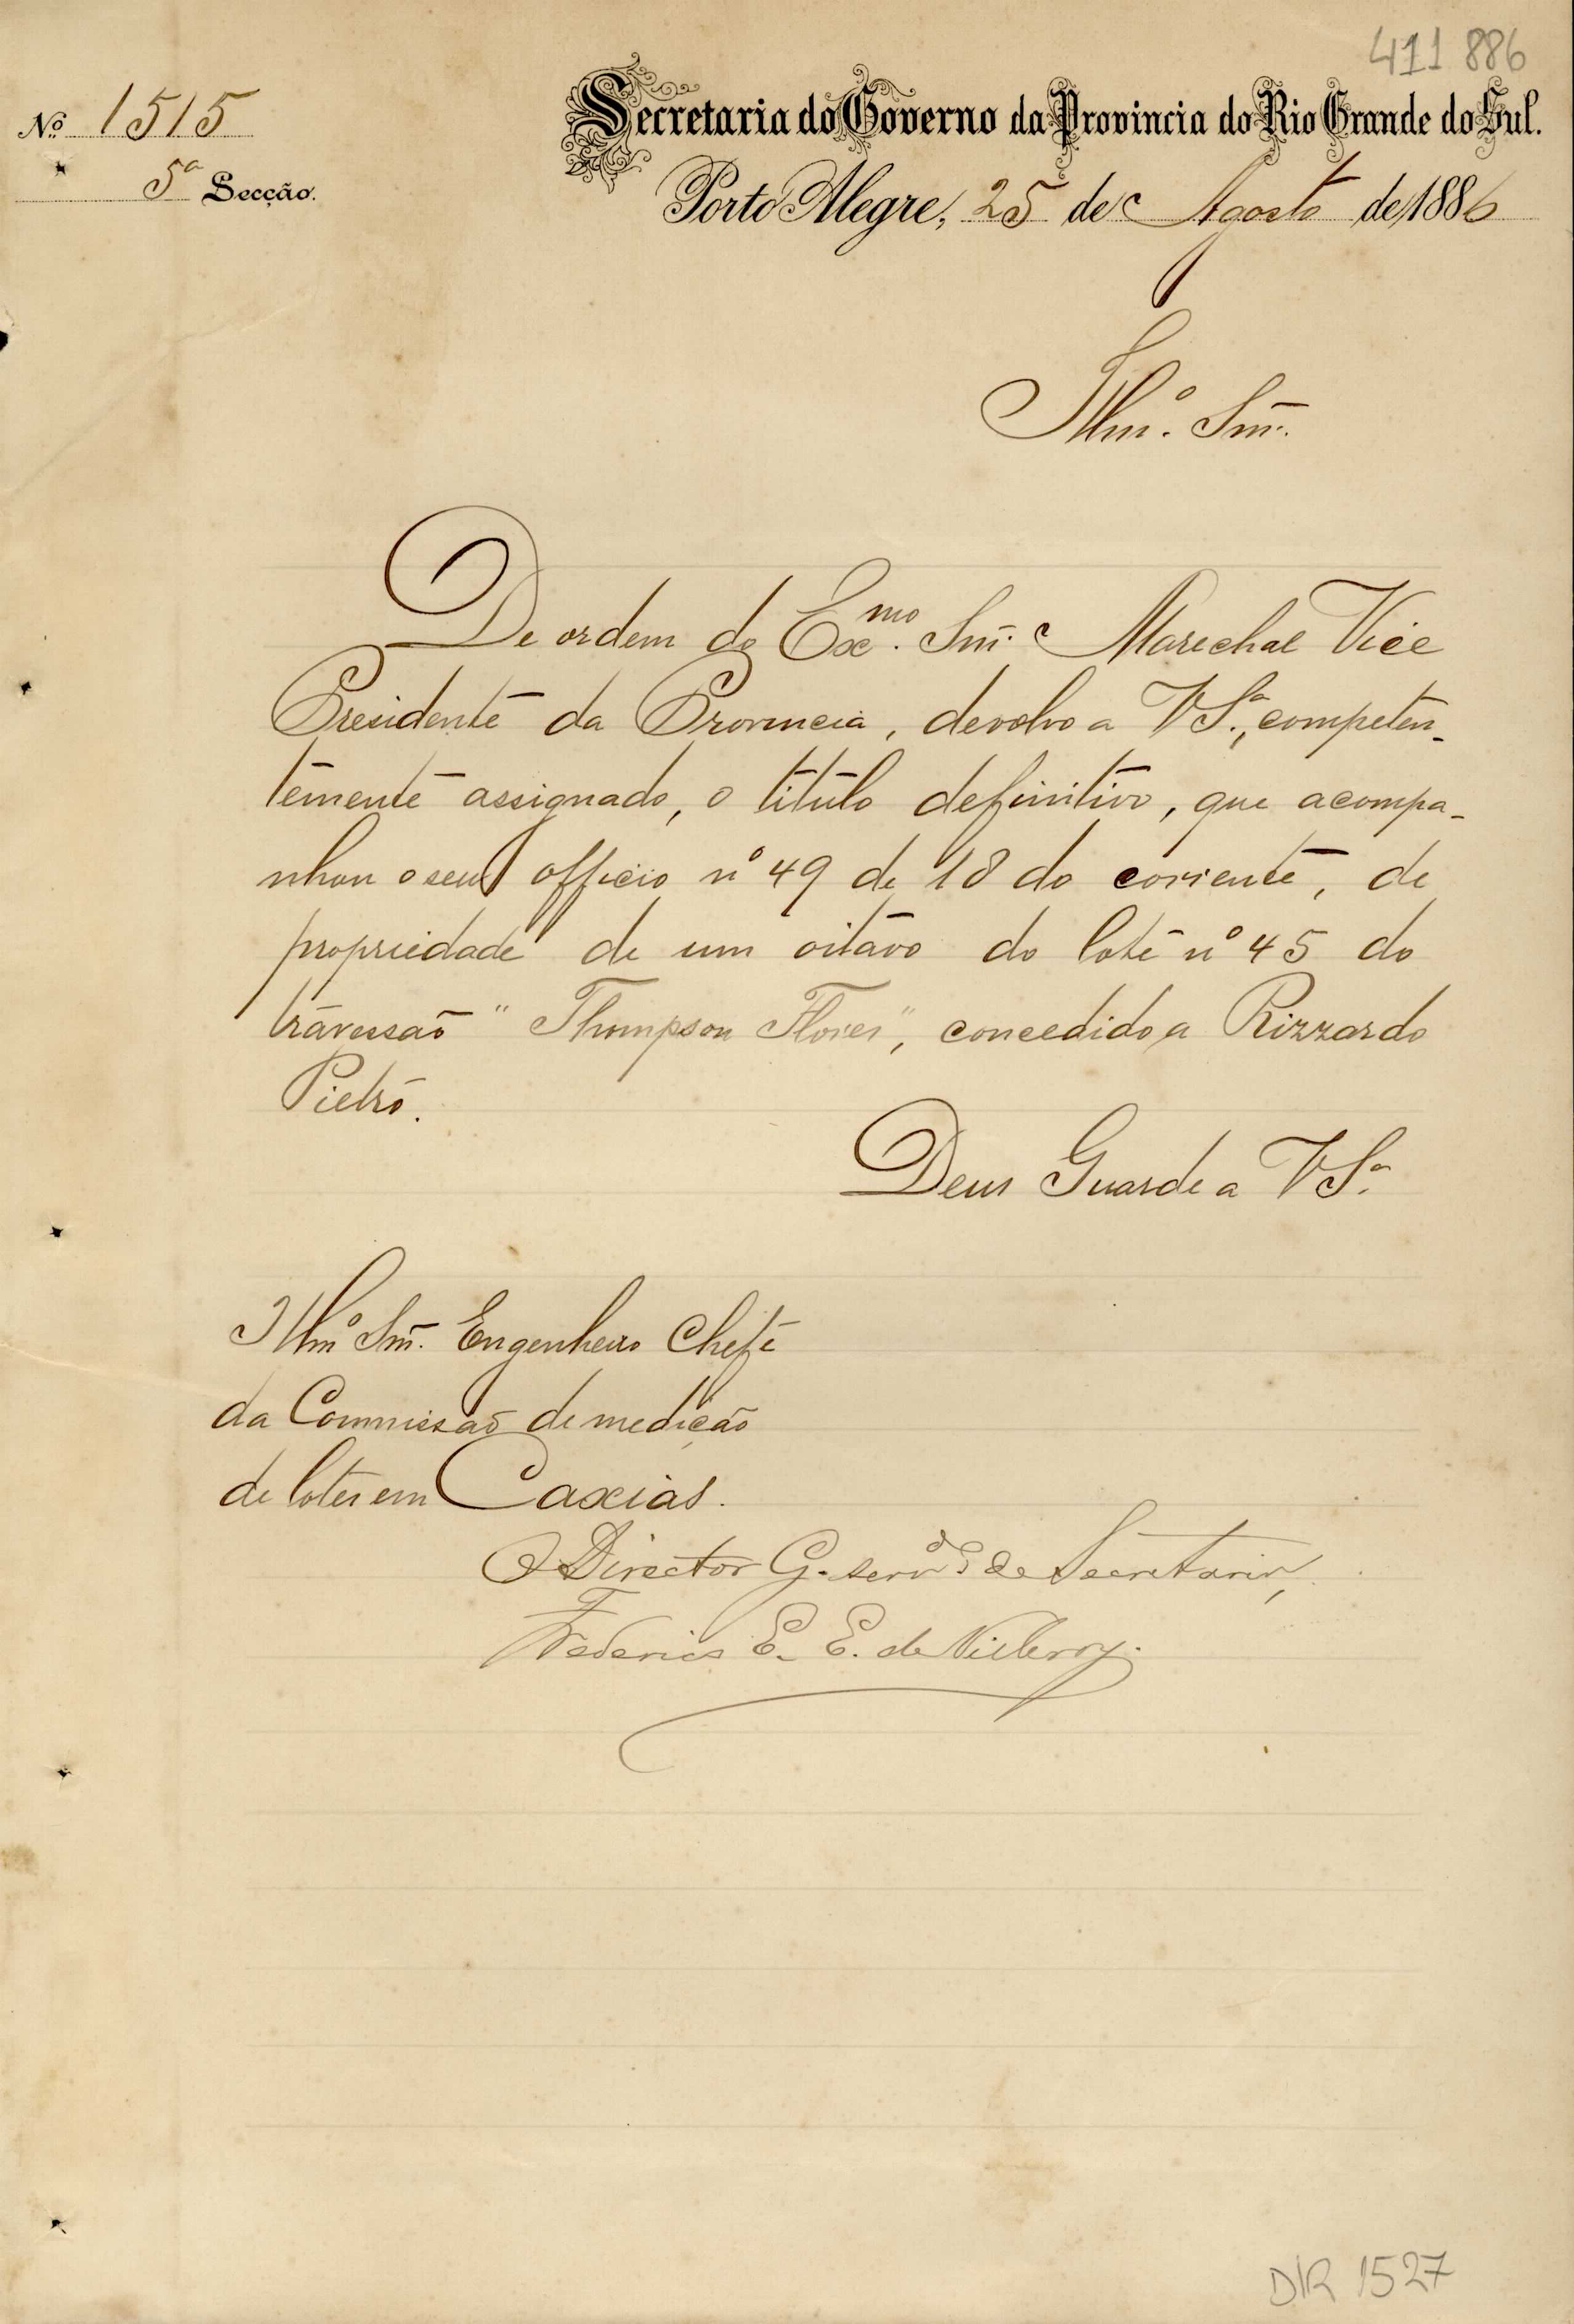 411 886
Nº 1515
5ª Secção.
Secretaria do Governo da Provincia do Rio Grande do Sul.
Porto Alegre, 25 de Agosto de 1886
Illmº. Snr.
De ordem do Exmo. Snr. Marechal Vice
Presidente da Provincia, devolvo a VSª., competen-
temente assignado, o titulo definitivo, que acompa-
nhou o seu officio nº 49 de 18 do corrente, de
propriedade de um oitavo do lote nº 45 do
travessão "Thompson Flores", concedido a Rizzardo
Pietro.
Deus Guarde a VSª.
Illmº Snr. Engenheiro Chefe
da Commissão de medição
de lotes em Caxias.
O Director G. serv de Secretario,
Frederico E. E. de Villeroy.
DIR 1527